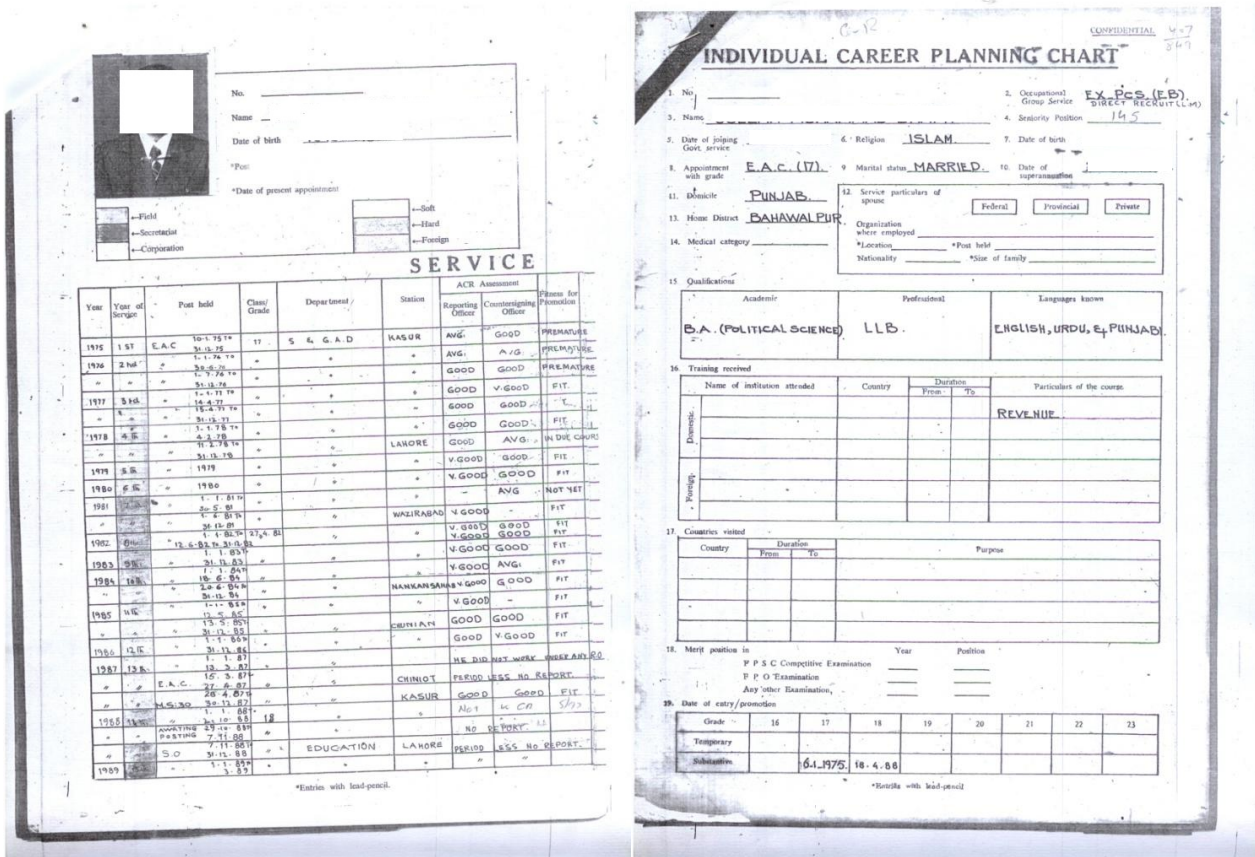 No.
Name
Date of birth
*Post
*Date of present appointment
←Field
←Secretariat
←Corporation
←Soft
←Hard
←Foreign
SERVICE
Year Year of Service Post held Class/Grade Department Station ACR Assessment Fitness for Promotion
Reporting Officer Countersigning Officer
1975 1 ST E.A.C 10-1.75 TO 31.12.75 17 S & G.A.D KASUR AVG. GOOD PREMATURE
1976 2nd " 1-1-76 TO 30-6-76 " " " AVG. AVG. PREMATURE
" " " 1-7-76 TO 31-12-76 " " " GOOD GOOD PREMATURE
1977 3rd " 1-1-77 TO 14-4-77 " " " GOOD V.GOOD FIT.
" " " 15-4-77 TO 31-12-77 " " " GOOD GOOD
1978 4th " 1-1-78 TO 4-2-78 " " " GOOD GOOD FIT
" " " 11-2-78 TO 31-12-78 " " LAHORE GOOD AVG. IN DUE COURS
1979 5th " 1979 " " " V.GOOD GOOD FIT
1980 6th " 1980 " " " V.GOOD GOOD FIT
1981 1-1-81 TO 30-5-81 " " " - AVG NOT YET
" " 1-6-81 TO 31-12-81 " " WAZIRABAD V.GOOD - FIT
1982 8th 1-1-82 TO 27.4.82 V.GOOD GOOD FIT
" 12.6-82 TO 31-12-82 V.GOOD GOOD FIT
1983 9th 1-1-83 TO 31-12-83 " " " V.GOOD GOOD FIT
1984 10th 1-1-84 TO 18-6-84 " " " V.GOOD AVG. FIT
20-6-84 TO 31-12-84 " " NANKANSAHAB V.GOOD GOOD FIT
1985 11th 1-1-85 TO 12-5-85 " " " V.GOOD - FIT
" " " 13-5-85 TO 31-12-85 " " CHUNIAN GOOD GOOD FIT
1986 12th 1-1-86 TO 31-12-86 " " " GOOD V.GOOD FIT
1987 13th 1-1-87 13-3-87 " " HE DID NOT WORK UNDER ANY RO
" " E.A.C. 15-3-87 TO 27-4-87 " " CHINIOT PERIOD LESS NO REPORT.
" M.S:30 28-4-87 TO 30-12-87 " " KASUR GOOD GOOD FIT
1988 1-1-88 10-88 18 "
AWAITING POSTING 29-10-88 TO 7-11-88 " NO REPORT
" S.O 7-11-88 TO 31-12-88 " EDUCATION LAHORE PERIOD LESS NO REPORT.
1989 " 1-1-89 TO 3-89 " " " " "
*Entries with lead-pencil.
CONFIDENTIAL
INDIVIDUAL CAREER PLANNING CHART
1. No
2. Occupational Group Service EX_PCS.(EB). DIRECT RECRUIT(L.M)
3. Name
4. Seniority Position 145
5. Date of joining Govt. service
6. Religion ISLAM.
7. Date of birth
8. Appointment with grade E.A.C.(17).
9 Marital status MARRIED.
10. Date of superannuation
11. Domicile PUNJAB.
12. Service particulars of spouse
Federal Provincial Private
13. Home District BAHAWALPUR
Organization where employed
14. Medical category
*Location *Post held
Nationality *Size of family
15. Qualifications
Academic Professional Languages known
B.A.(POLITICAL SCIENCE) LLB. ENGLISH, URDU, & PUNJABI.
16. Training received
Name of institution attended Country Duration Particulars of the course
From To
Domestic REVENUE
Foreign
17. Countries visited
Country Duration Purpose
From To
18. Merit position in Year Position
F P S C Competitive Examination
F P O Examination
Any other Examination,
19. Date of entry/promotion
Grade 16 17 18 19 20 21 22 23
Temporary
Substantive 10-1-1975. 18-4-88
*Entries with lead-pencil